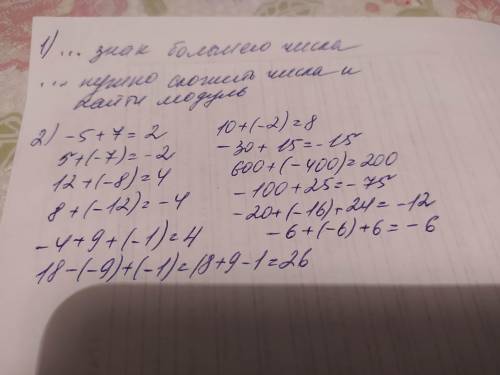 1) ... знак большего числа
... нужно сложить числа и
найти модуль
2) -5+7=2
5+(-7)=-2
12+(-8)=4
8+(-12)=-4
-4+9+(-1)=4
18-(-9)+(-1)=18+9-1=26
10+(-2)=8
-30+15=-15
600+(-400)=200
-100+25=-75
-20+(-16)+24=-12
-6+(-6)+6=-6